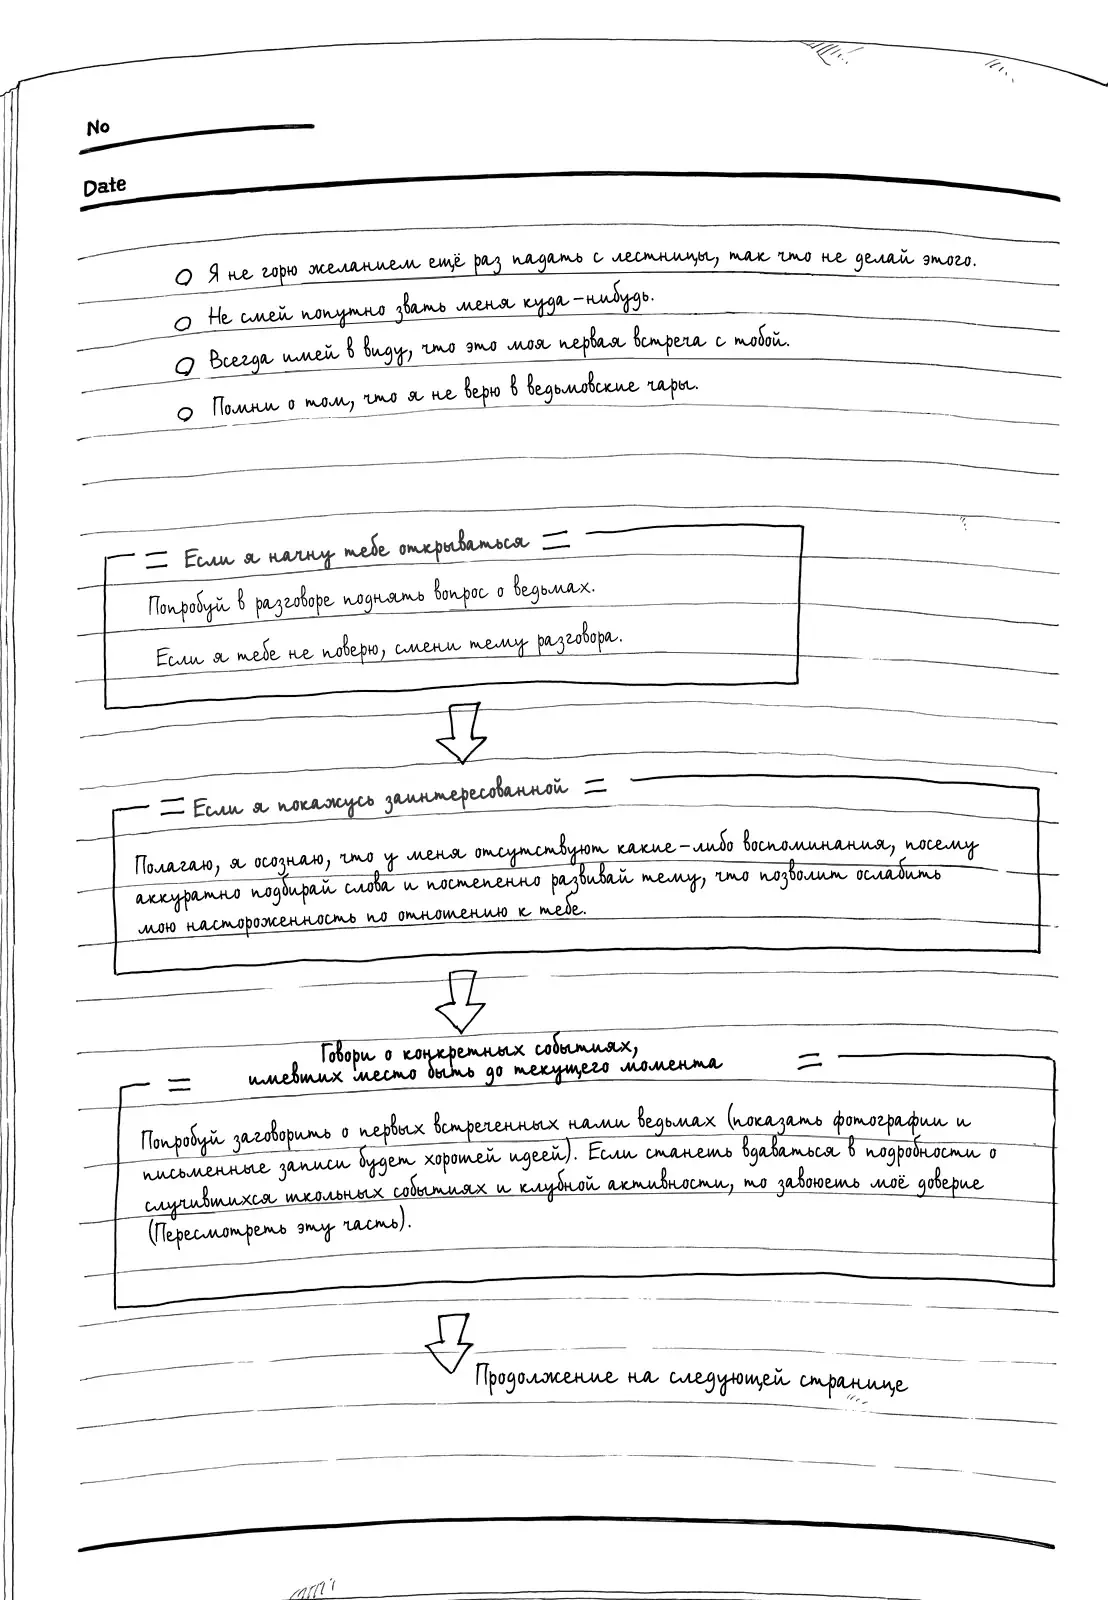 No
Date
Я не горю желанием ещё раз падать с лестницы, так что не делай этого.
Не смей попутно звать меня куда-нибудь.
Всегда имей в виду, что это моя первая встреча с тобой.
Помни о том, что я не верю в ведьмовские чары.
Если я начну тебе открываться
Попробуй в разговоре поднять вопрос о ведьмах.
Если я тебе не поверю, смени тему разговора.
Если я покажусь заинтересованной
Полагаю, я осознаю, что у меня отсутствуют какие-либо воспоминания, посему
аккуратно подбирай слова и постепенно развивай тему, что позволит ослабить
мою настороженность по отношению к тебе.
Говори о конкретных событиях,
имевших место быть до текущего момента
Попробуй заговорить о первых встреченных нами ведьмах (показать фотографии и
письменные записи будет хорошей идеей). Если станешь вдаваться в подробности о
случившихся школьных событиях и клубной активности, то завоюешь моё доверие
(Пересмотреть эту часть).
Продолжение на следующей странице